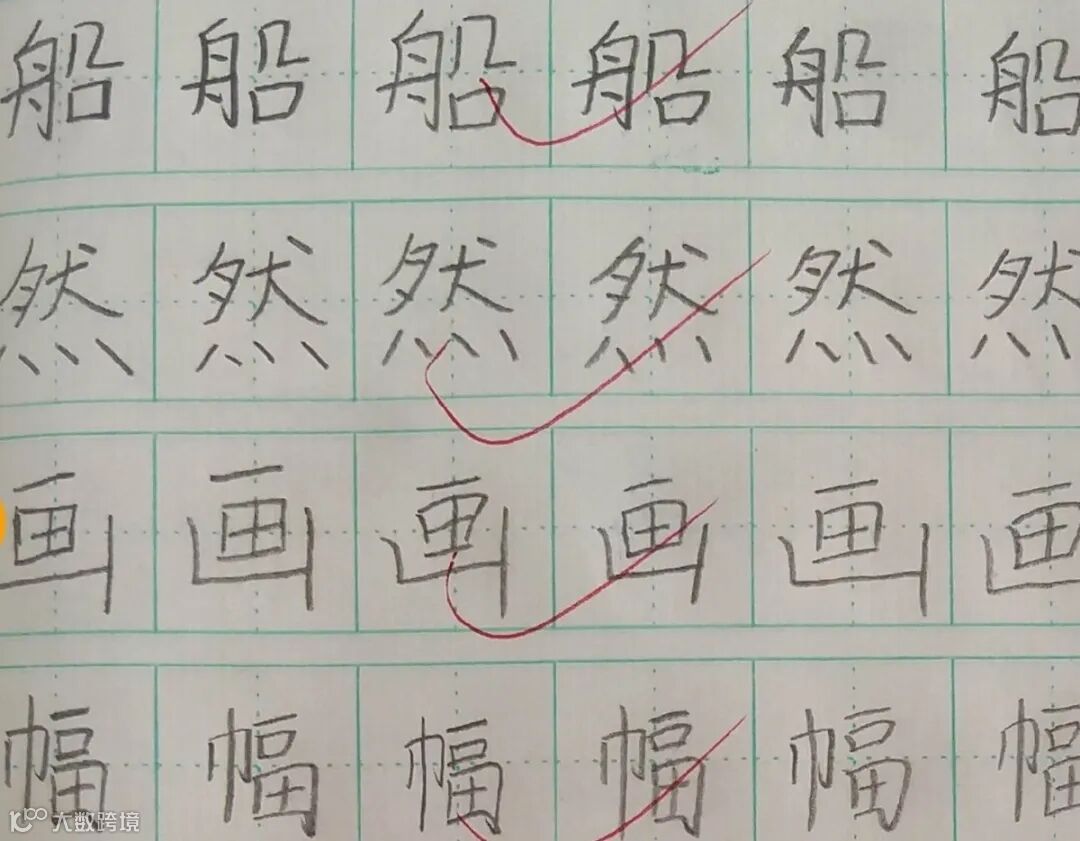 船船船船船船
然然然然然然
画画画画画画
幅幅幅幅幅幅
大数跨境